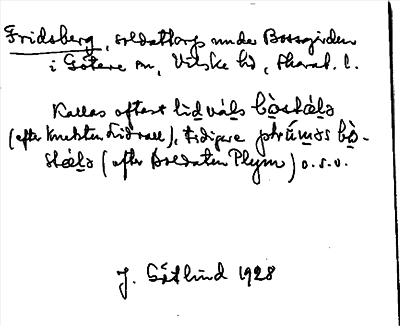 Fridsberg, soldattorp under Bossgården
i Götene sn, Vilske hd, Skarab. l.
Kallas oftast lidvals bòstćlə
(efter knekten Lidvall), tidigare plýməs bò-
stćlə (efter soldaten Plym) o.s.v.
J. Götlind 1928